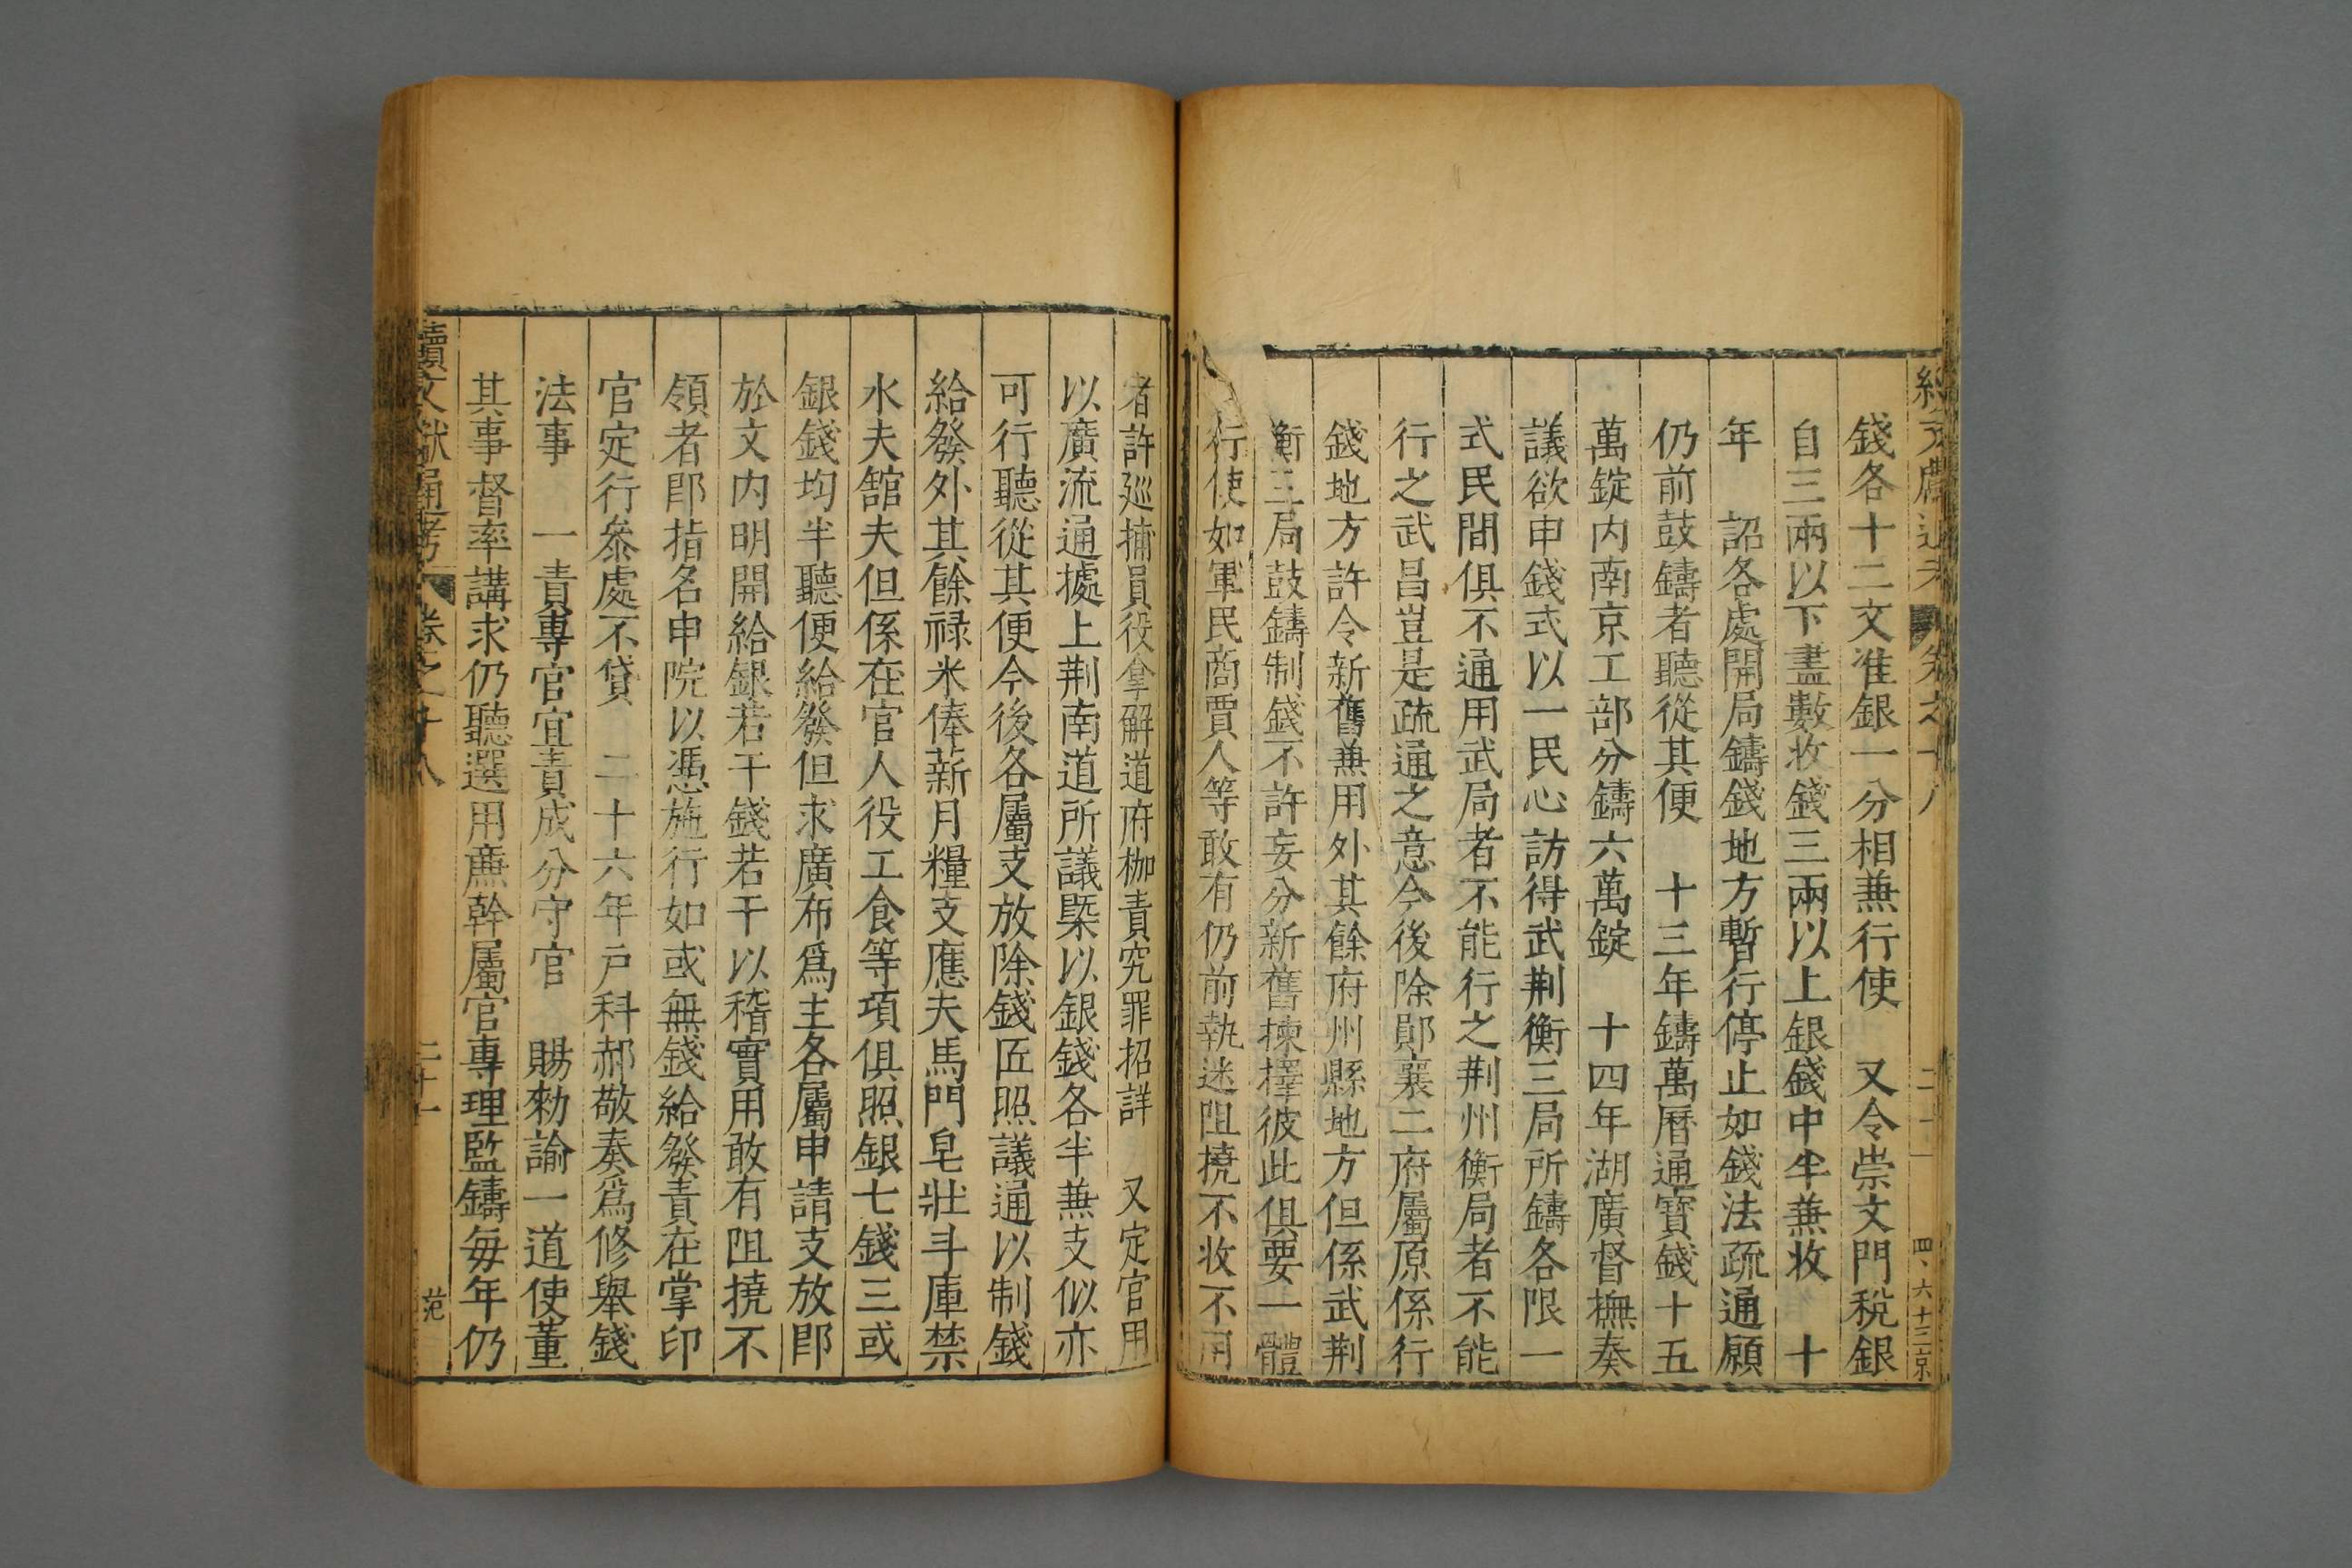 錢各十二文准銀一分相兼行使　又令崇文門稅銀
自三兩以下盡數收錢三兩以上銀錢中半兼收　十
年　詔各處開局鑄錢地方暫行停止如錢法疏通願
仍前鼓鑄者聽從其便　十三年鑄萬曆通寶錢十五
萬錠內南京工部分鑄六萬錠　十四年湖廣督撫奏
議欲申錢式以一民心訪得武荆衡三局所鑄各限一
式民間俱不通用武局者不能行之荆州衡局者不能
行之武昌豈是疏通之意今後除鄖襄二府屬原係行
錢地方許令新舊兼用外其餘府州縣地方但係武荆
衡三局鼓鑄制錢不許妄分新舊揀擇彼此俱要一體
行使如軍民商賈人等敢有仍前執迷阻撓不收不用
者許廵捕員役拿解道府枷責究罪招詳　又定官用
以廣流通據上荆南道所議槩以銀錢各半兼支似亦
可行聽從其便今後各屬支放除錢匠照議通以制錢
給發外其餘禄米俸薪月糧支應夫馬門皂壯斗庫禁
水夫舘夫但係在官人役工食等項俱照銀七錢三或
銀錢均半聽便給發但求廣布爲主各屬申請支放即
於文內明開給銀若干錢若干以稽實用敢有阻撓不
領者即指名申院以憑施行如或無錢給發責在掌印
官定行叅處不貸　二十六年戶科郝敬奏爲修舉錢
法事　一責專官宜責成分守官　賜勑諭一道使董
其事督率講求仍聽選用廉幹屬官專理監鑄每年仍
續文獻通考　卷之十八　二十一　范